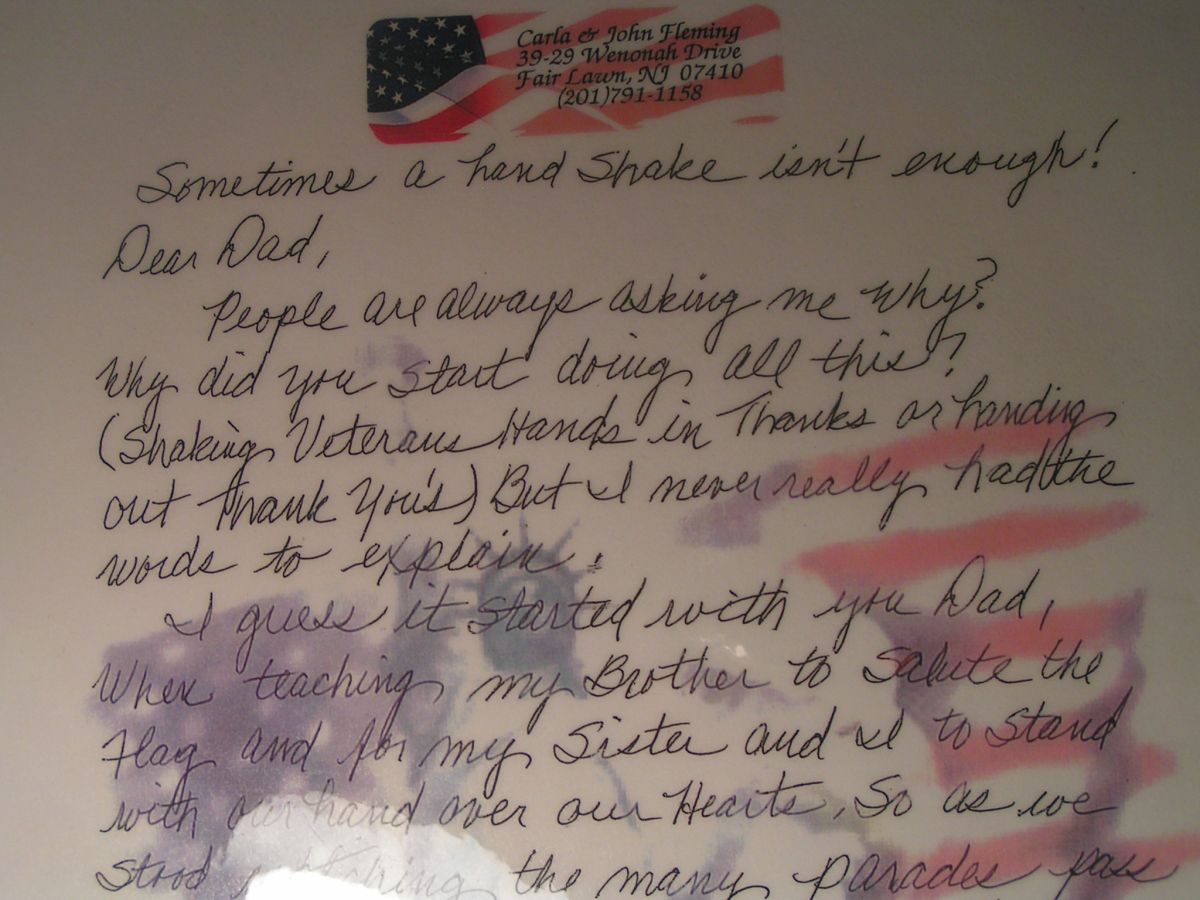 Carla & John Fleming
39-29 Wenonah Drive
Fair Lawn, NJ 07410
(201)791-1158
Sometimes a hand Shake isn't enough!
Dear Dad,
People are always asking me why?
Why did you start doing all this?
(Shaking Veterans Hands in Thanks or handing
out Thank You's) But I never really had the
words to explain.
I guess it started with you Dad,
When teaching my Brother to Salute the
Flag and for my Sister and I to Stand
with our hand over our Hearts. So as we
Stood watching the many parades pass